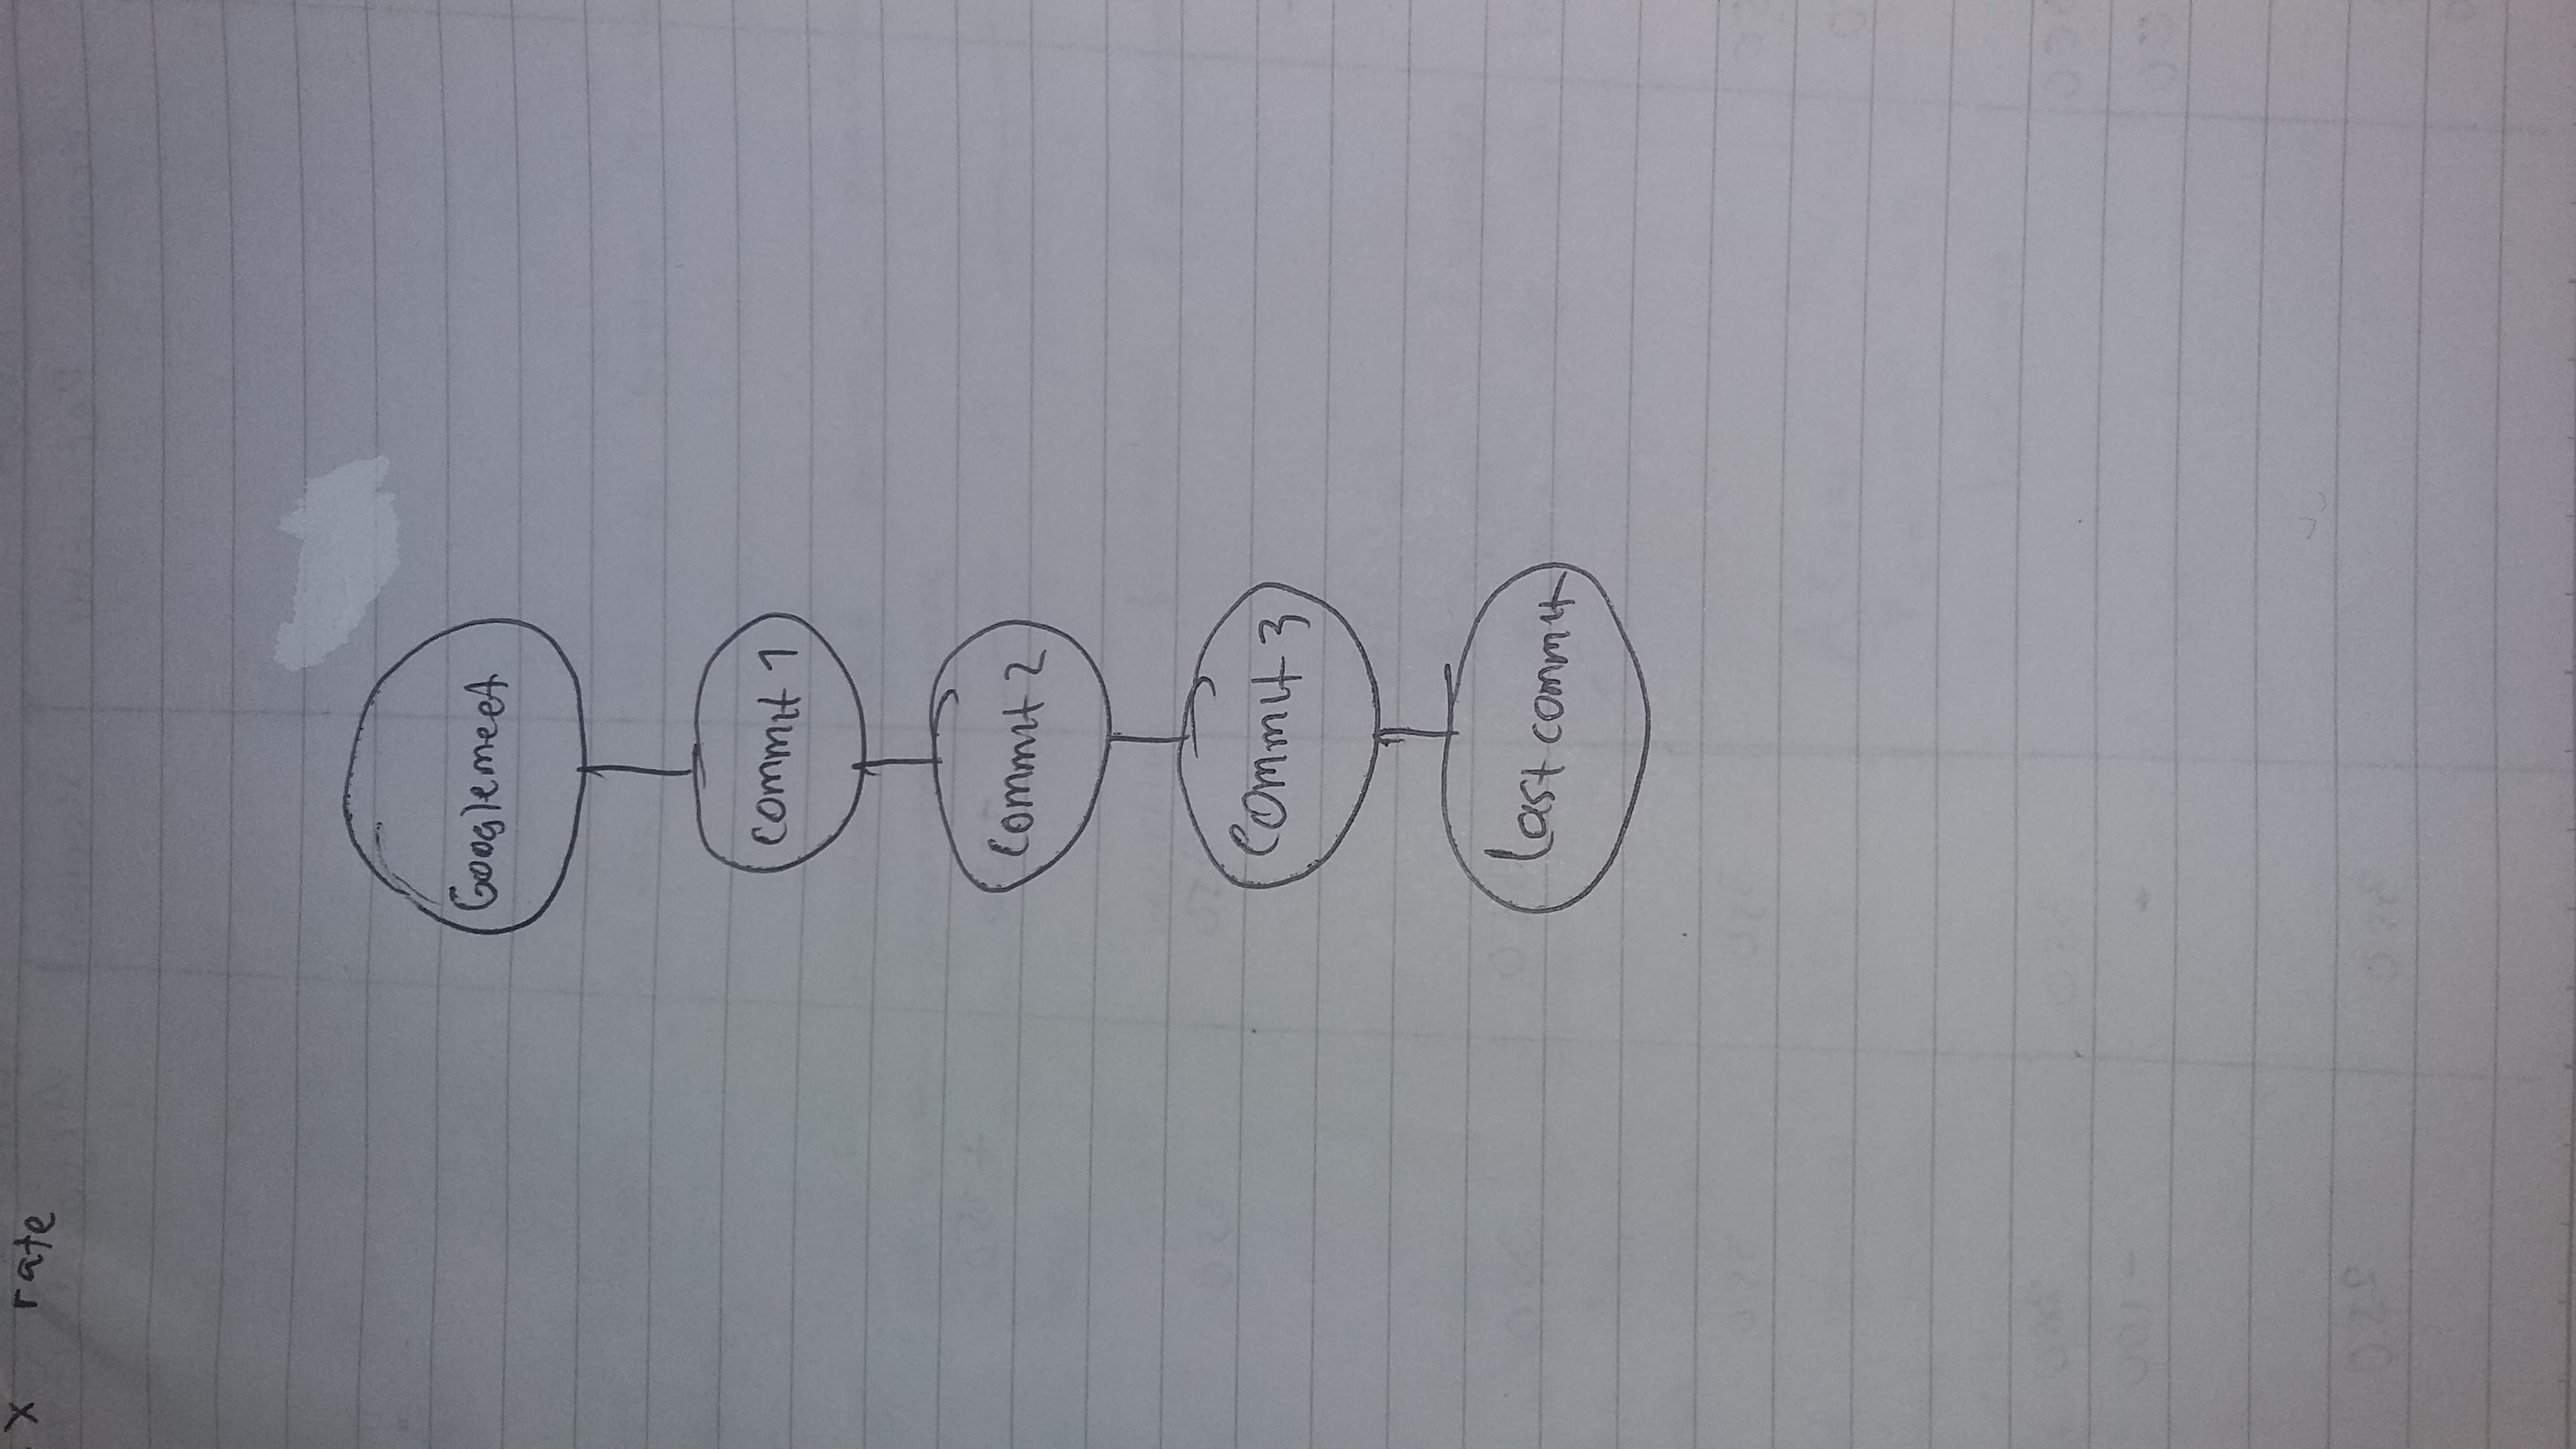 x rate
Googlemeet
commit 1
commit 2
commit 3
last commit